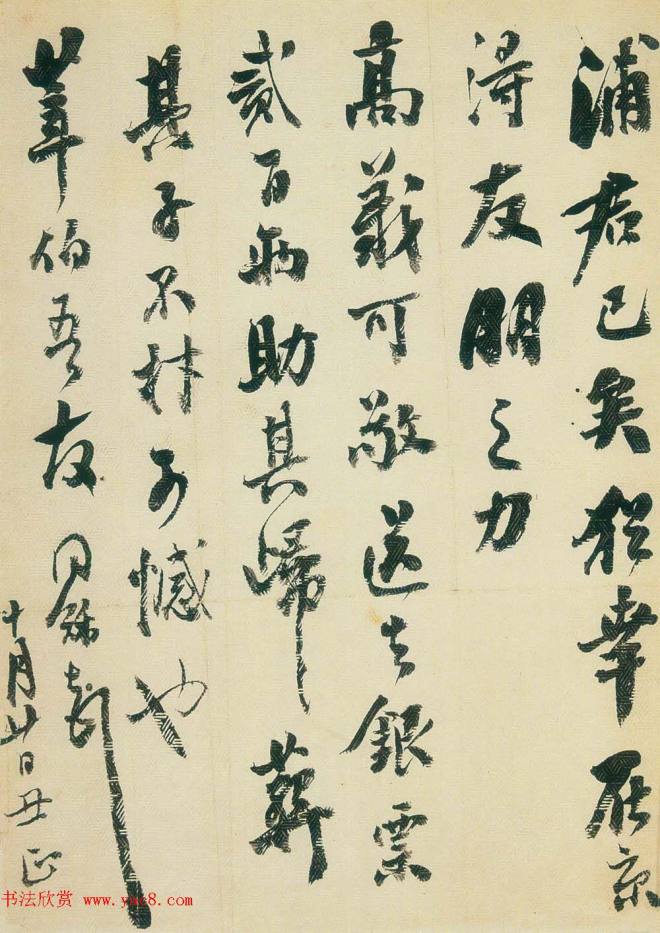 浦君已矣猶幸在京
得友朋之力
高義可敬送去銀票
貳百兩助其歸葬
其子不材可憾也
葦伯吾友
同龢頓
十月廿日丑正
书法欣赏 www.yac8.com